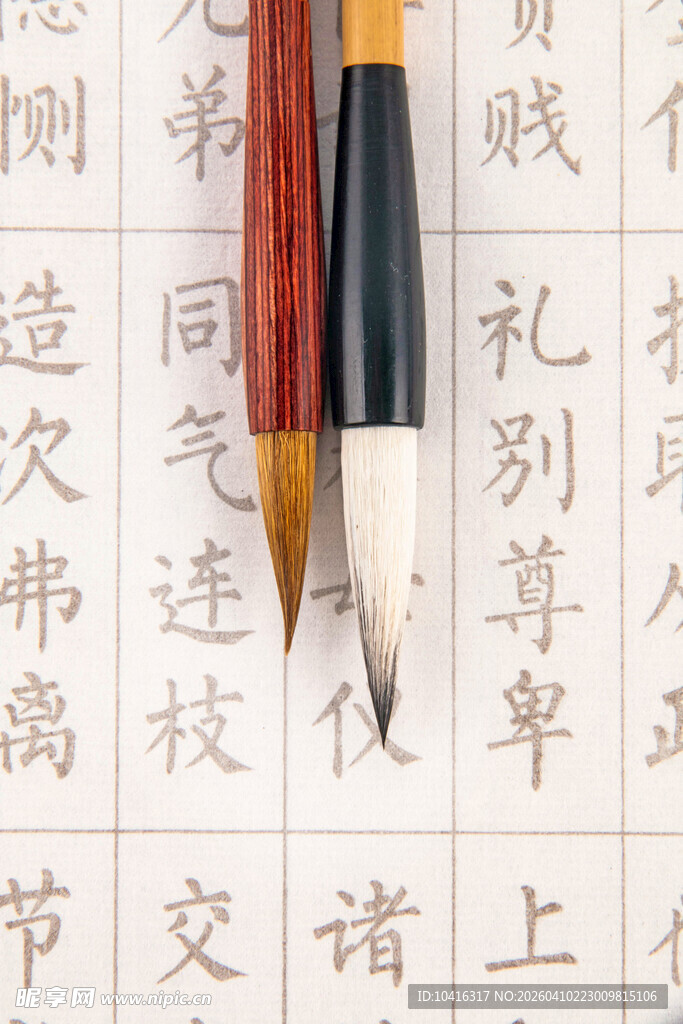 贱礼别尊卑上
仪诸
弟同气连枝交
恻造次弗离节
昵享网 www.nipic.cn
ID:10416317 NO:20260410223009815106